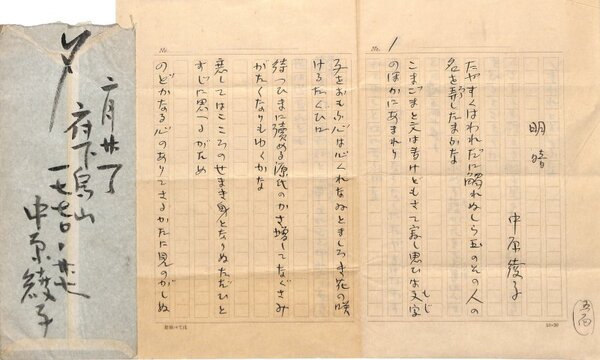 No. 1
明暗
中原綾子
たやすくはわれだに觸れぬしら玉のその人の
名を弄したまふな
こまごまと文は書けどもさて寂し思ひは文字
もじ
のほかにあまれり
No.
子をおもふ心は心くれなゐとましろき花の咲
けるたぐひに
待つひまに讀める源氏のかさ增してなぐさみ
がたくなりもゆくかな
戀してはこころのせまき身となりぬただひと
すじに思へるがため
のどかなる心のありてさるかたに見のがしぬ
10-20
〆
府下烏山
一七七〇
中原綾子